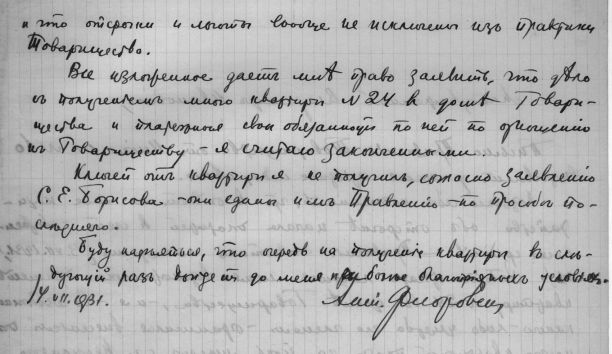 и что отсрочки и льготы вообще не исключены изъ практики
Товарищество.
Все изложенное даетъ мнѣ право заявить, что дѣло
съ полученіемъ мною квартиры N 24 въ домѣ Товари-
щества и платежныя свои обязанности по ней по отношенію
къ Товариществу - я считаю законченными.
Ключей отъ квартиры я не получилъ, согласно заявленію
С. Е. Борисова - они сданы имъ Правленію - по просьбѣ по-
слѣдняго.
Буду надѣяться, что очередь на полученіе квартиры въ слѣ-
дующій разъ дойдетъ до меня при болѣе благопріятныхъ условіяхъ.
14.VII.1931.